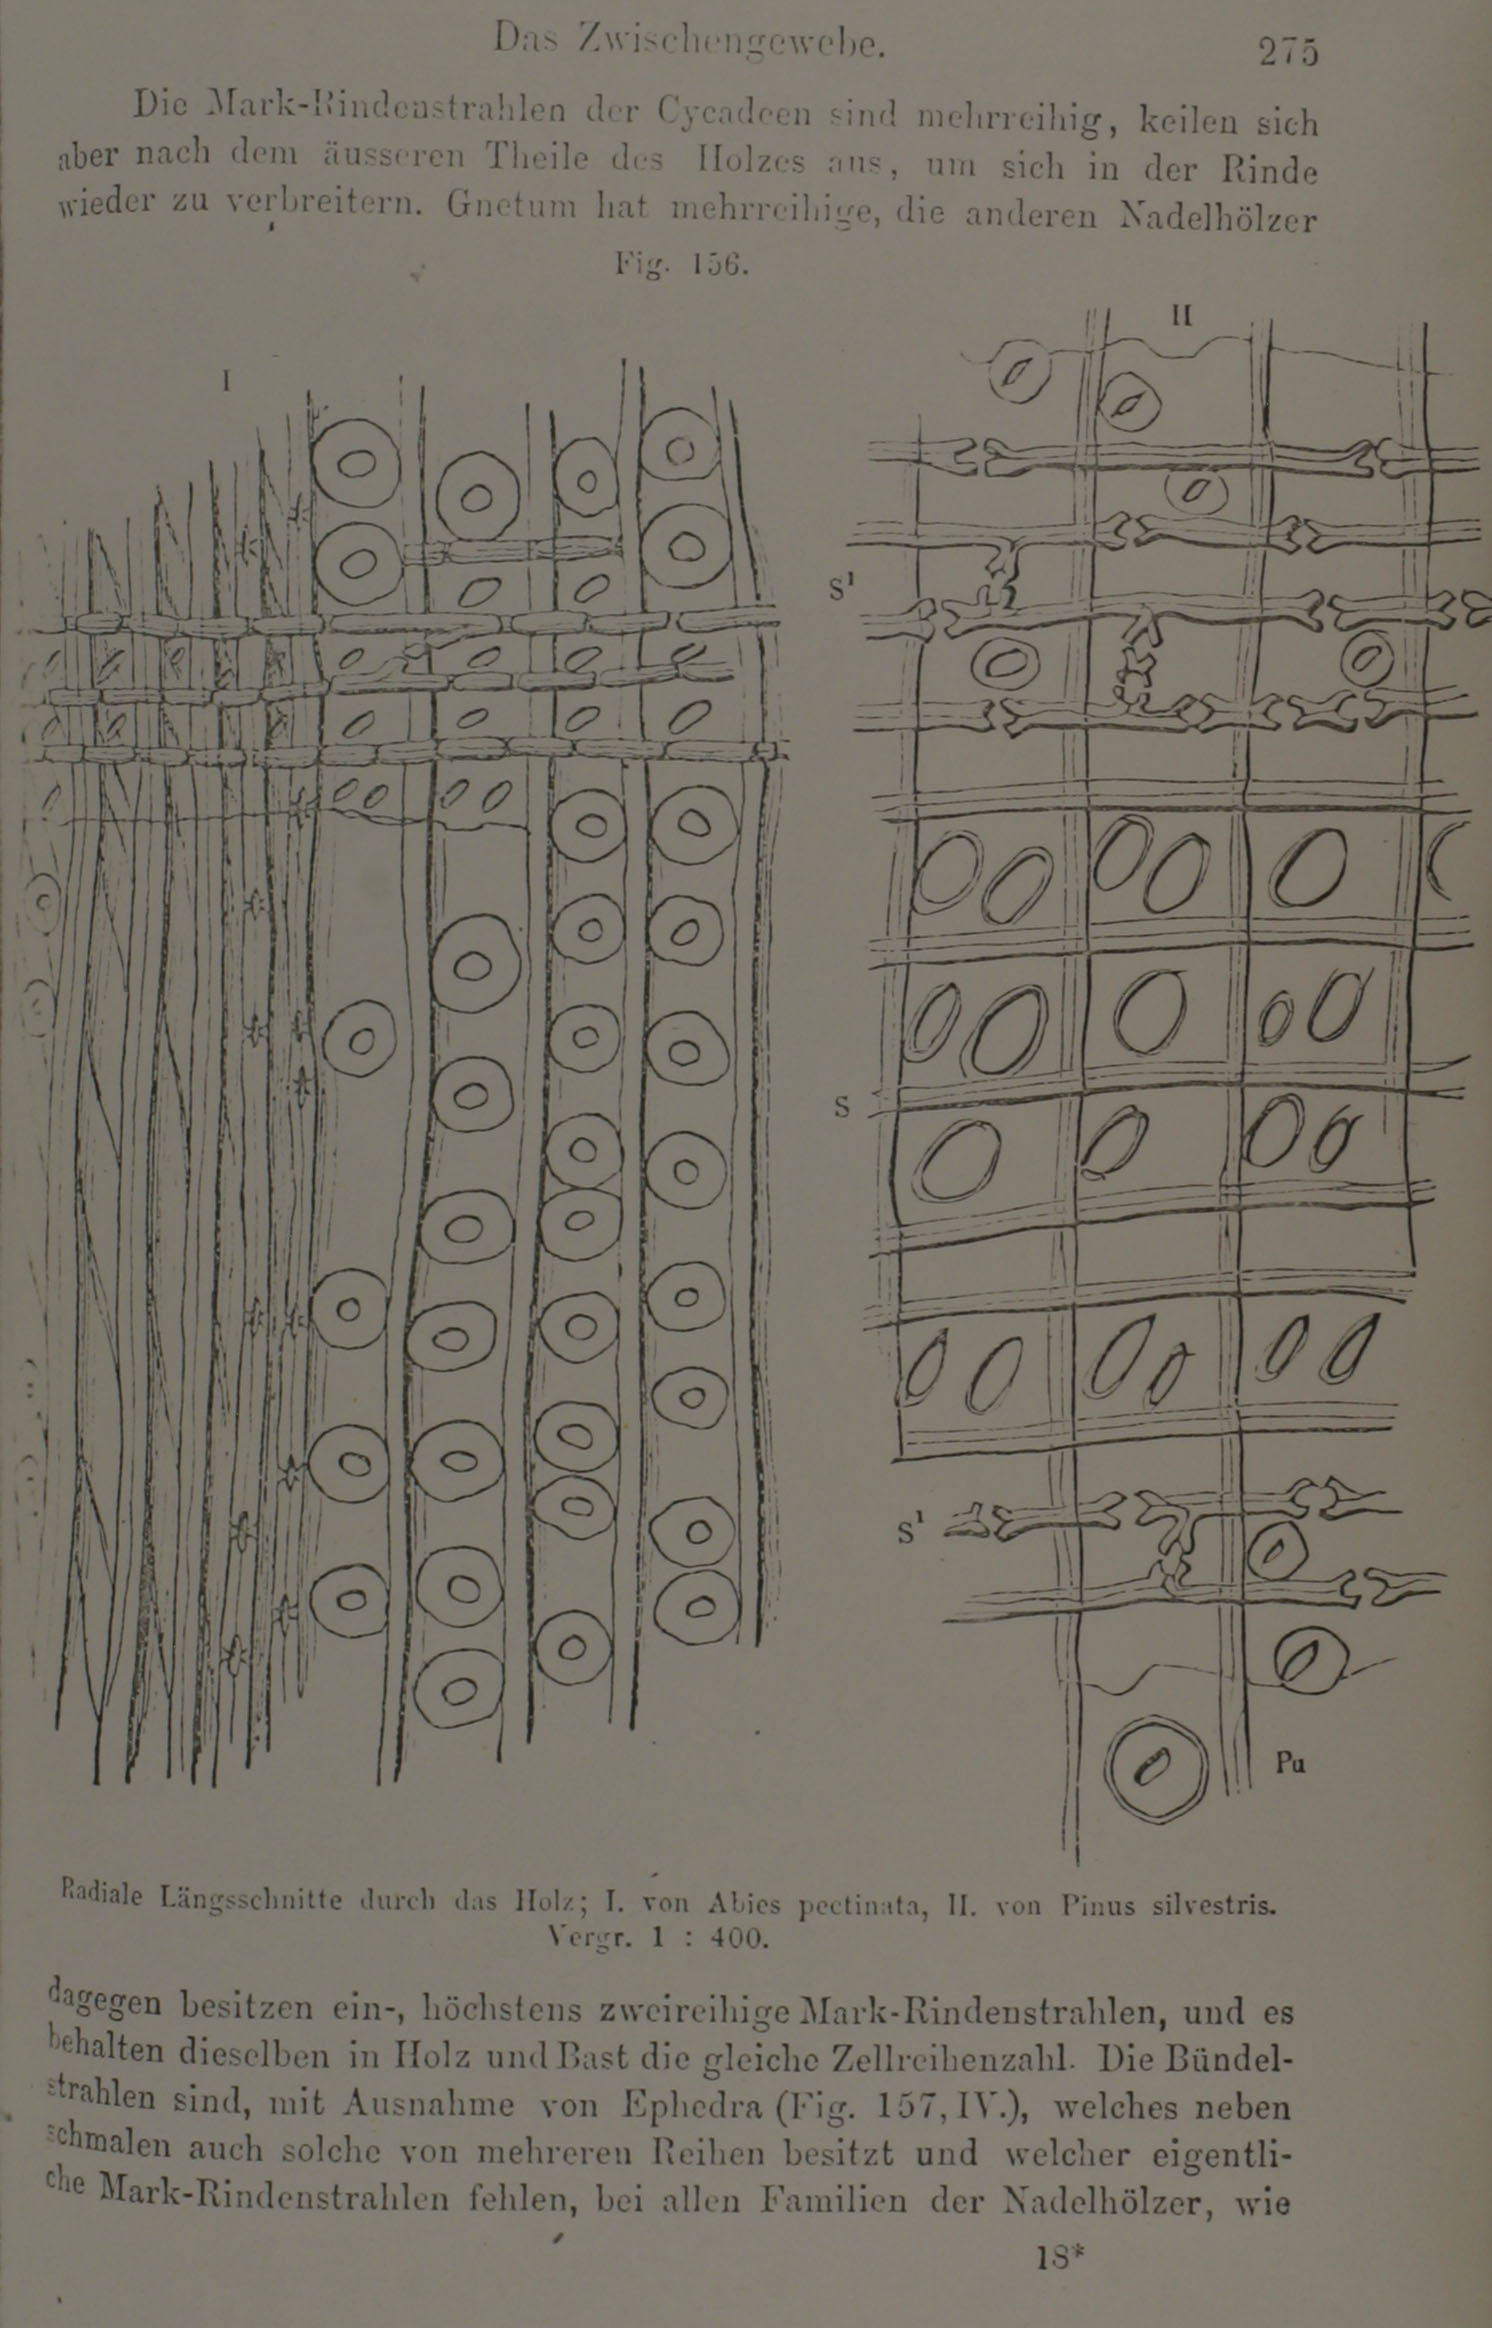 Das Zwischengewebe.
275
Die Mark-Rindenstrahlen der Cycadeen sind mehrreihig, keilen sich
aber nach dem äusseren Theile des Holzes aus, um sich in der Rinde
wieder zu verbreitern. Gnetum hat mehrreihige, die anderen Nadelhölzer
Fig. 156.
I
II
S¹
S
S¹
Pu
Radiale Längsschnitte durch das Holz; I. von Abies pectinata, II. von Pinus silvestris.
Vergr. 1 : 400.
dagegen besitzen ein-, höchstens zweireihige Mark-Rindenstrahlen, und es
behalten dieselben in Holz und Bast die gleiche Zellreihenzahl. Die Bündel-
strahlen sind, mit Ausnahme von Ephedra (Fig. 157, IV.), welches neben
schmalen auch solche von mehreren Reihen besitzt und welcher eigentli-
che Mark-Rindenstrahlen fehlen, bei allen Familien der Nadelhölzer, wie
18*